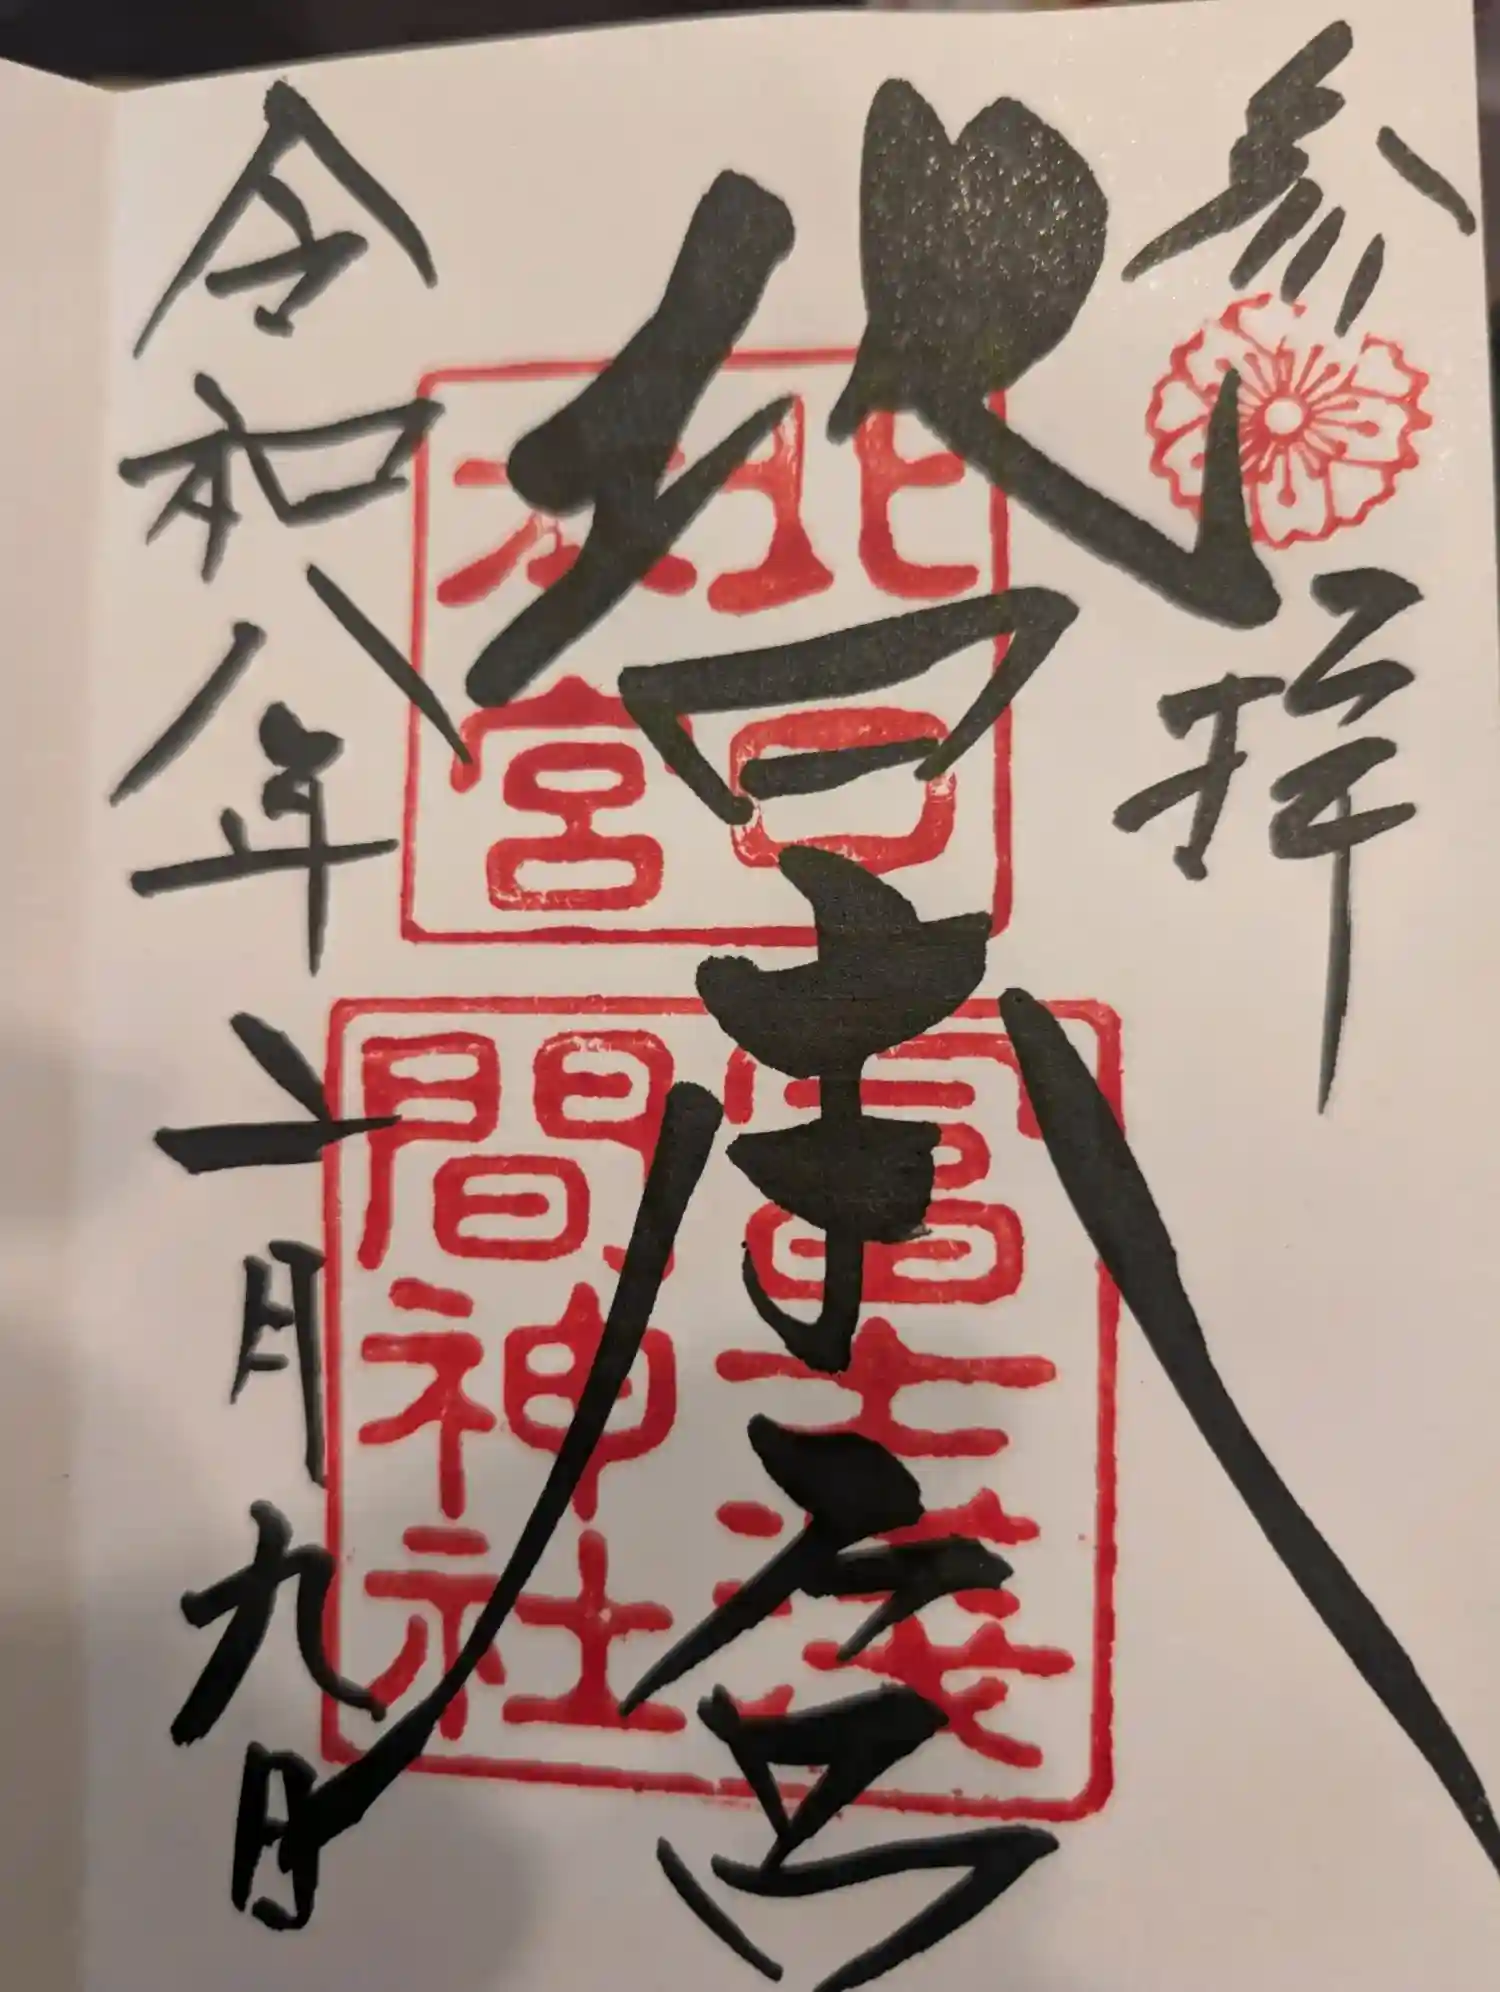 参拝
北口本宮
北口
本宮
冨士淺
間神社
令和八年六月九日